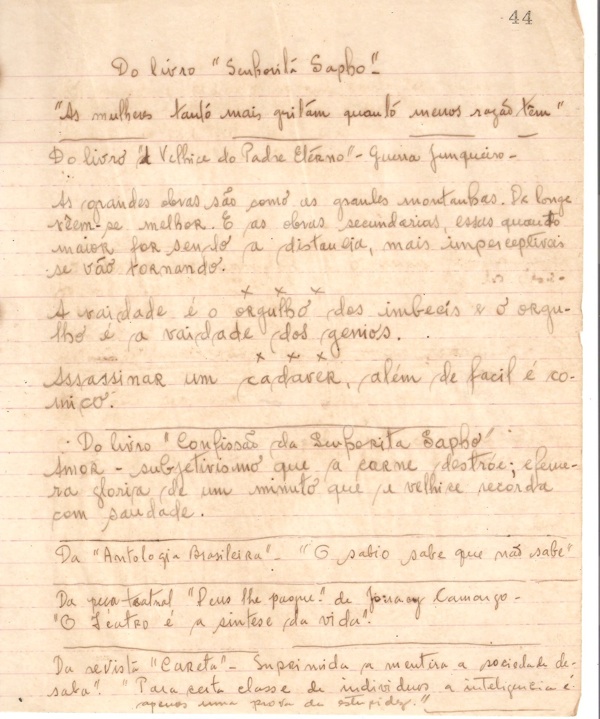 44
Do livro "Senhorita Sapho"
"As mulheres tanto mais gritam quanto menos razão têm"
Do livro "A Velhice do Padre Eterno" - Guerra Junqueiro -
As grandes obras são como as grandes montanhas. De longe
vêem-se melhor. E as obras secundarias, essas quanto
maior for sendo a distancia, mais imperceptiveis
se vão tornando.
x x x
A vaidade é o orgulho dos imbecis e o orgu-
lho é a vaidade dos genios.
x x x
Assassinar um cadaver, além de facil é co-
mico.
Do livro "Confissão da Senhorita Sapho"
Amor - subjetivismo que a carne destróe; efeme-
ra gloria de um minuto que a velhice recorda
com saudade.
Da "Antologia Brasileira" - "O sabio sabe que não sabe"
Da peça teatral "Deus lhe pague" de Joracy Camargo -
"O Teatro é a sintese da vida".
Da revista "Careta" - Suprimida a mentira a sociedade de-
saba". "Para certa classe de individuos a inteligencia é
apenas uma prova da estupidez."